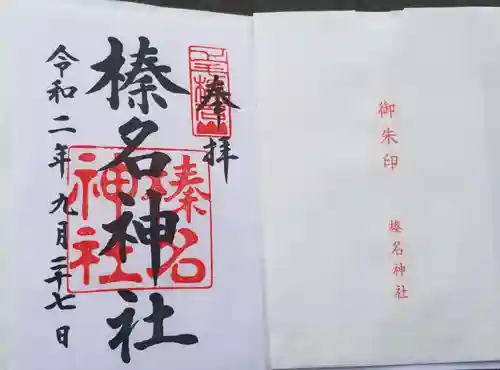 奉拝
榛名神社
令和二年九月二十七日
榛名神社
御朱印
榛名神社